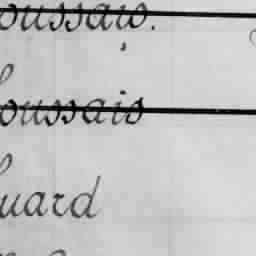 oussais.
oussais
uard